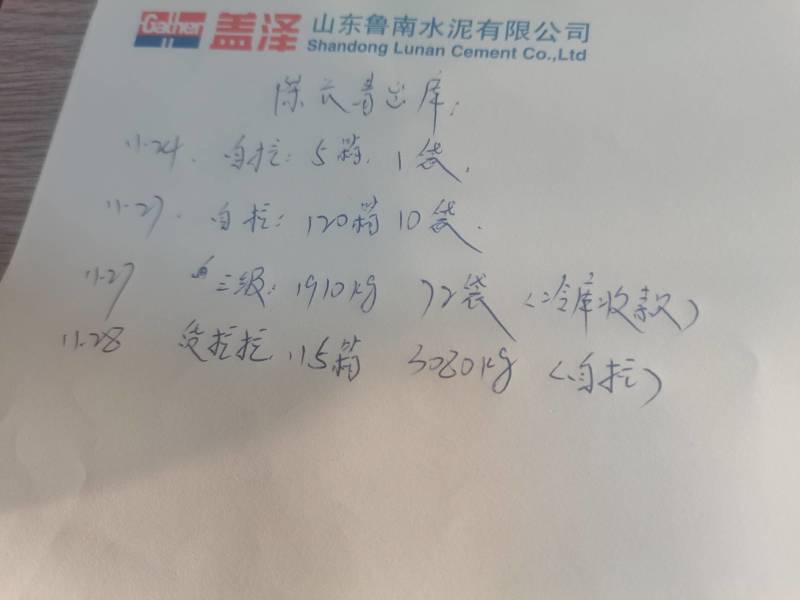 Gather 盖泽 山东鲁南水泥有限公司
Shandong Lunan Cement Co.,Ltd
长青出库:
11.24. 自拉: 5箱. 1袋.
11.27. 自拉: 120箱 10袋.
11.27 三级: 1910kg 72袋 (冷库收款)
11.28 货拉拉 115箱 3080kg (自拉)